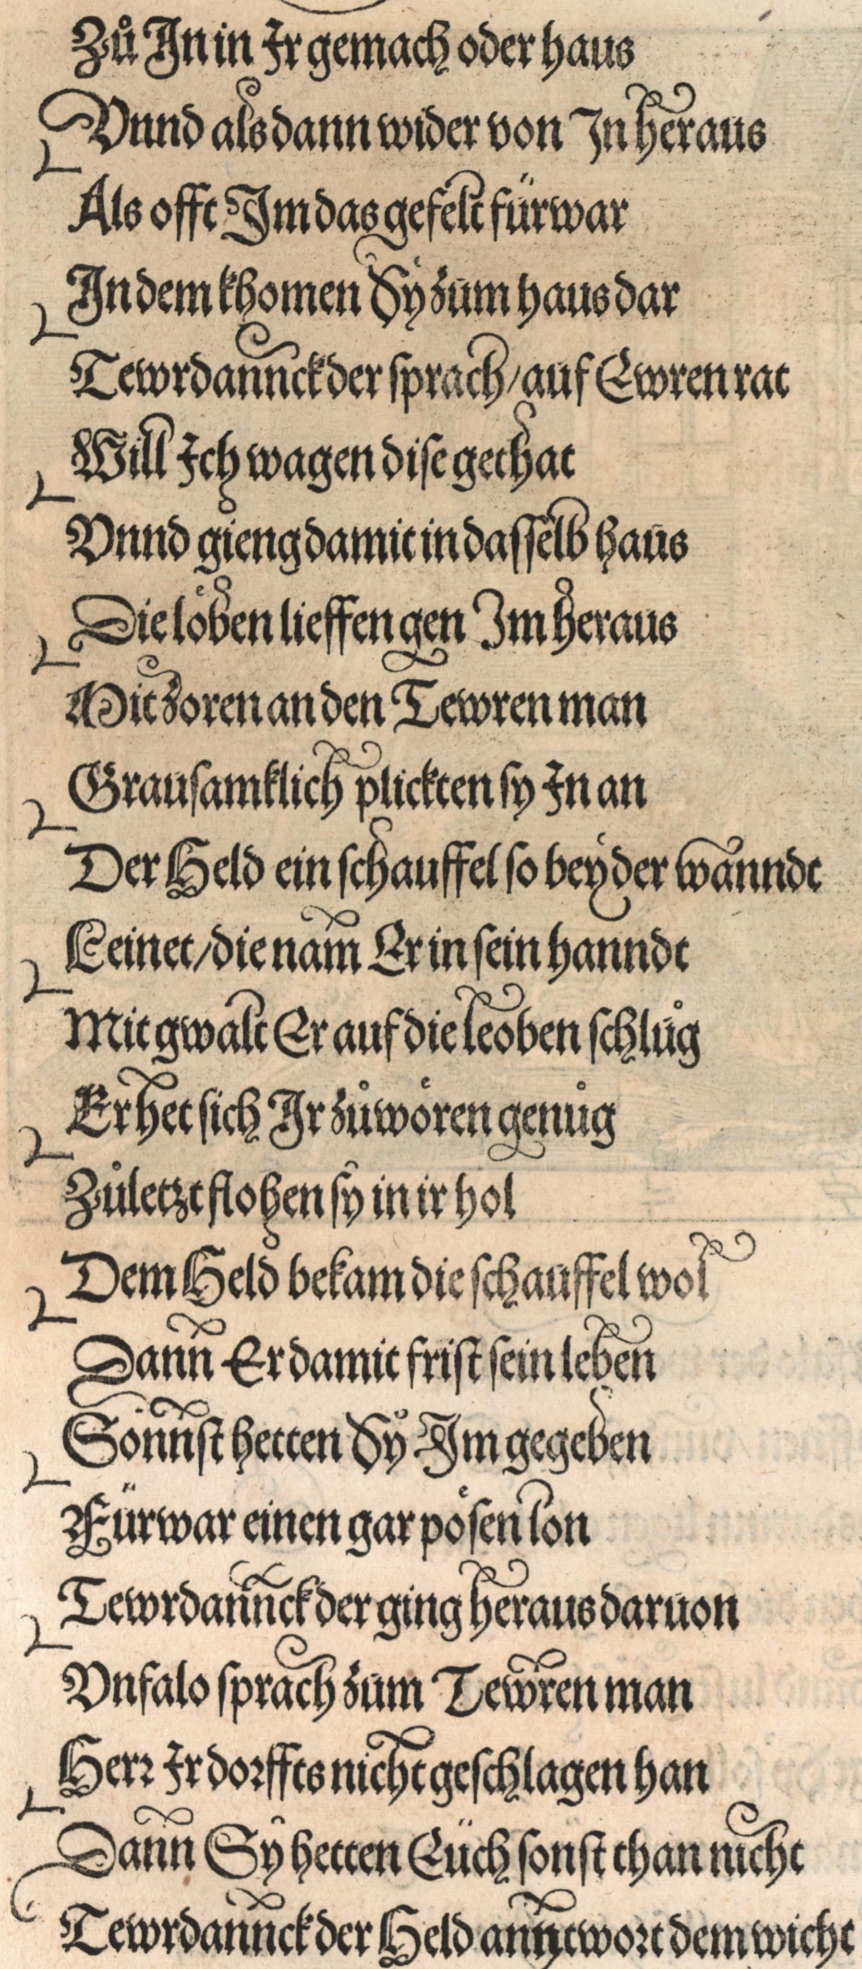 Zů In in Ir gemach oder haus
Vnnd als dann wider von In heraus
Als offt Im das gefelt fürwar
In dem khomen Sÿ zum haus dar
Tewrdannck der sprach / auf Ewren rat
Will Ich wagen dise gethat
Vnnd gieng damit in dasselb haus
Die löben lieffen gen Im heraus
Mit zoren an den Tewren man
Grausamklich plickten sy In an
Der Held ein schauffel so beÿ der wanndt
Leinet / die nam Er in sein hanndt
Mit gwalt Er auf die leoben schlůg
Er het sich Ir zůwören genůg
Zůletzt flohen sÿ in ir hol
Dem Held bekam die schauffel wol
Dann Er damit frist sein leben
Sonnst hetten Sÿ Im gegeben
Fürwar einen gar pösen lon
Tewrdannck der ging heraus daruon
Vnfalo sprach zum Tewren man
Herr Ir dorffts nicht geschlagen han
Dann Sÿ hetten Eüch sonst than nicht
Tewrdannck der Held anntwort dem wicht